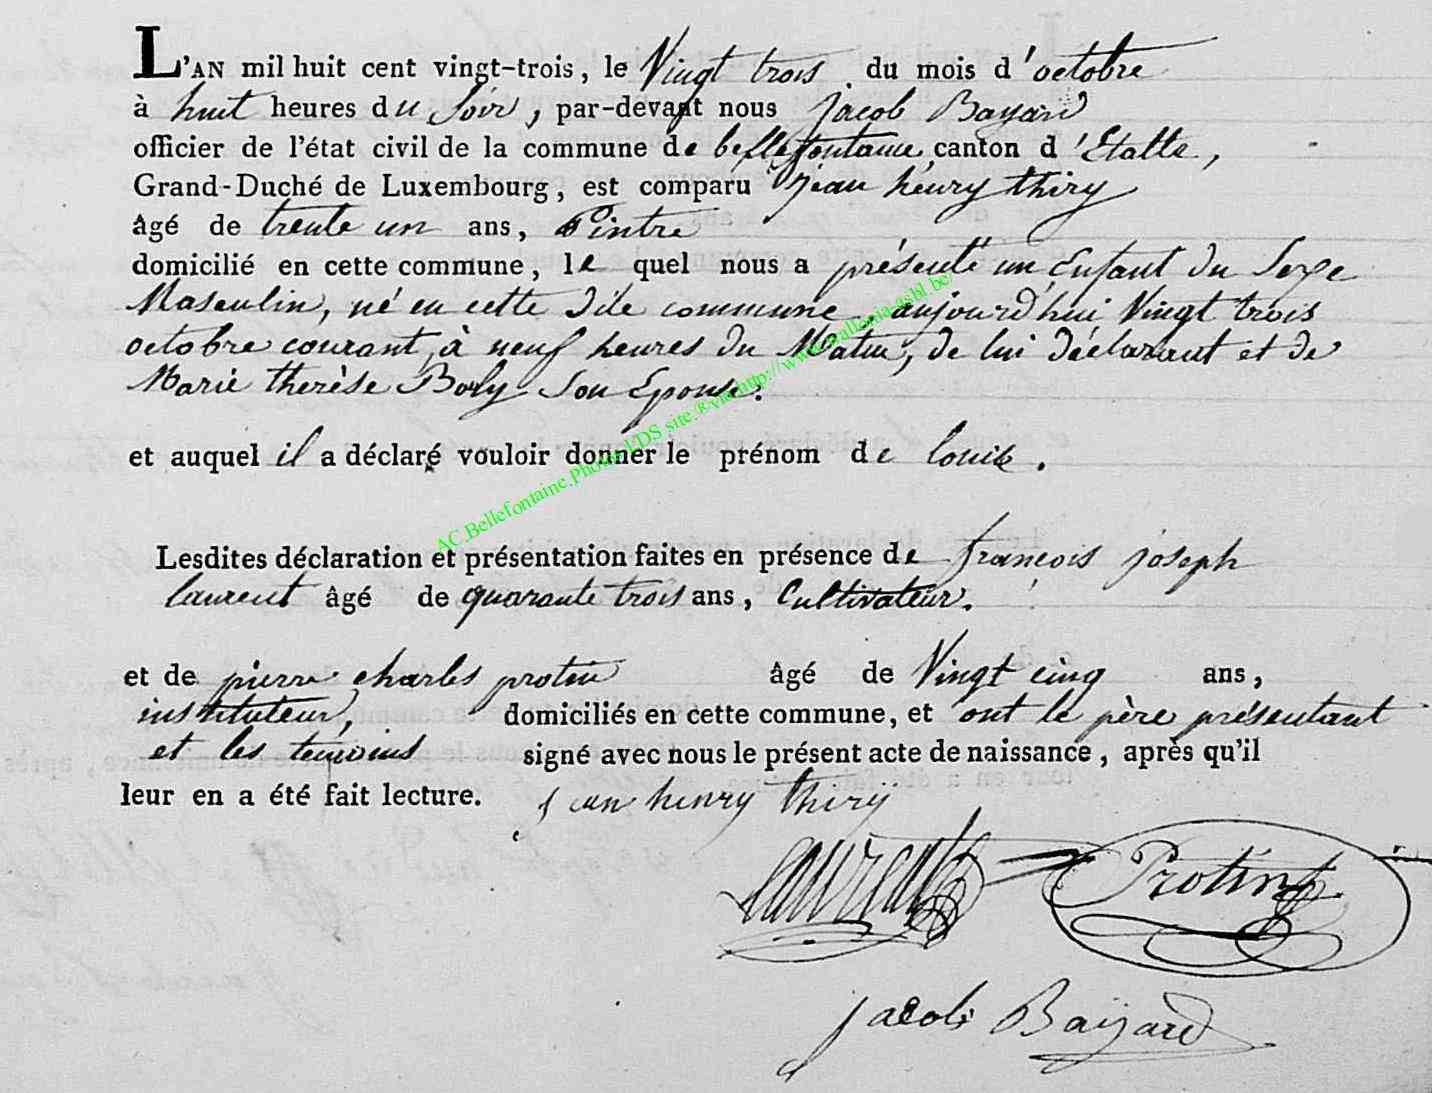 L'AN mil huit cent vingt-trois, le Vingt trois du mois d'octobre
à huit heures du Soir, par-devant nous Jacob Bayard
officier de l'état civil de la commune de bellefontaine, canton d'Etalle,
Grand-Duché de Luxembourg, est comparu jean henry thiry
âgé de trente un ans, Pintre
domicilié en cette commune, le quel nous a présenté un Enfant du Sexe
Masculin, né en cette dite commune, aujourd'hui Vingt trois
octobre courant, à neuf heures du Matin, de lui déclarant et de
Marie therèse Boly Son Epouse.
et auquel il a déclaré vouloir donner le prénom de louis.
Lesdites déclaration et présentation faites en présence de francois joseph
laurent âgé de quarante trois ans, Cultivateur.
et de pierre charles protin âgé de Vingt cinq ans,
instituteur, domiciliés en cette commune, et ont le père présentant
et les temoins signé avec nous le présent acte de naissance, après qu'il
leur en a été fait lecture. jean henry thiry
Laurent Protin
jacob Baÿard
AC.Bellefontaine.Photo LDS site